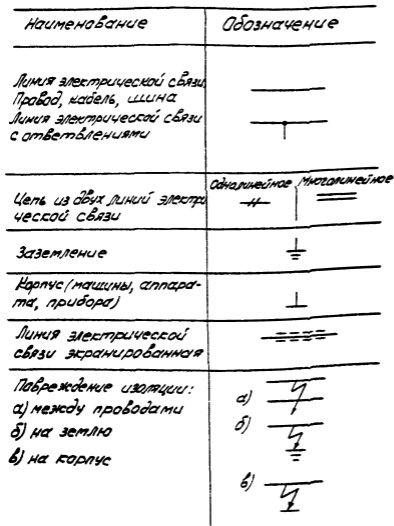 Наименование
Обозначение
Линия электрической связи,
Провод, кабель, шина
Линия электрической связи
с ответвлениями
Однолинейное Многолинейное
Цепь из двух линий электри
ческой связи
Заземление
Корпус (машины, аппара-
та, прибора)
Линия электрической
связи экранированная
Повреждение изоляции:
а) между проводами
б) на землю
в) на корпус
а)
б)
в)